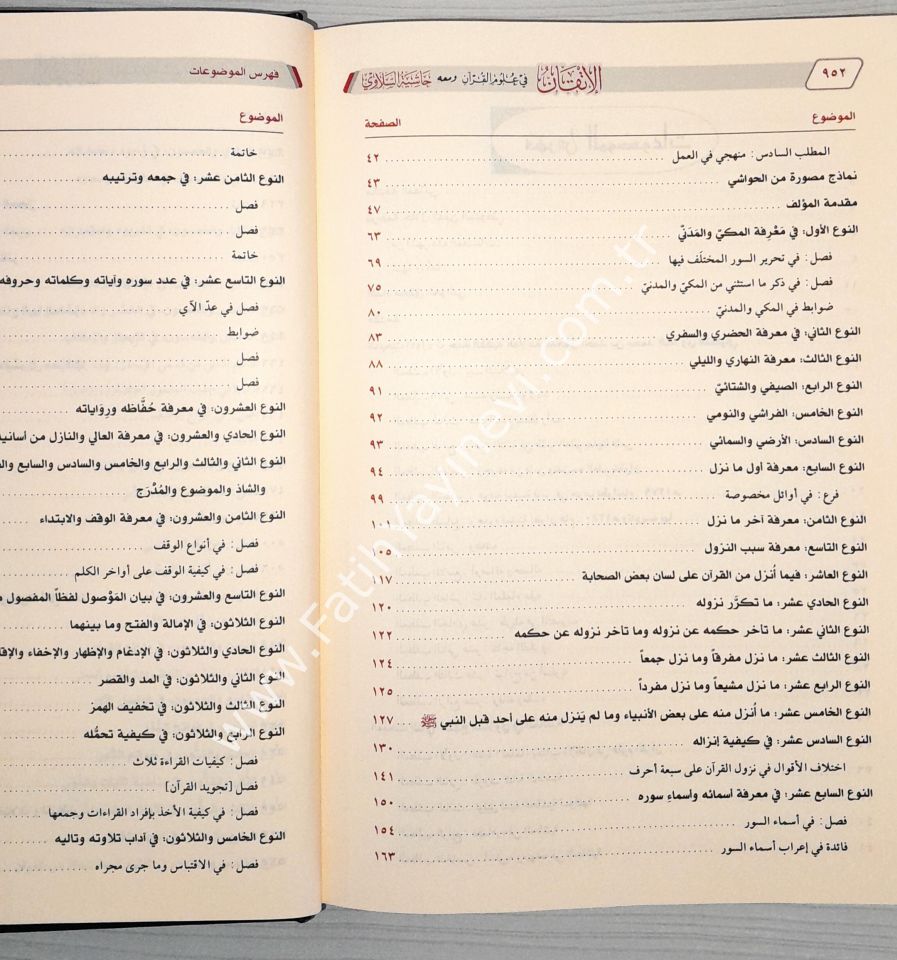 ٩٥٢
الإتقان في علوم القرآن ومعه حاشية السلاوي
الموضوع الصفحة
المطلب السادس: منهجي في العمل ٤٢
نماذج مصورة من الحواشي ٤٣
مقدمة المؤلف ٤٧
النوع الأول: في مَعْرِفة المكيّ والمَدَنّي ٦٣
فصل: في تحرير السور المختلَف فيها ٦٩
فصل: في ذكر ما استثني من المكيّ والمدنيّ ٧٥
ضوابط في المكي والمدنيّ ٨٠
النوع الثاني: في معرفة الحضري والسفري ٨٣
النوع الثالث: معرفة النهاري والليلي ٨٨
النوع الرابع: الصيفي والشتائيّ ٩١
النوع الخامس: الفراشي والنومي ٩٢
النوع السادس: الأرضي والسمائي ٩٣
النوع السابع: معرفة أول ما نزل ٩٤
فرع: في أوائل مخصوصة ٩٩
النوع الثامن: معرفة آخر ما نزل ١٠١
النوع التاسع: معرفة سبب النزول ١٠٥
النوع العاشر: فيما أُنزل من القرآن على لسان بعض الصحابة ١١٧
النوع الحادي عشر: ما تكرَّر نزوله ١٢٠
النوع الثاني عشر: ما تأخر حكمه عن نزوله وما تأخر نزوله عن حكمه ١٢٢
النوع الثالث عشر: ما نزل مفرقاً وما نزل جمعاً ١٢٤
النوع الرابع عشر: ما نزل مشيعاً وما نزل مفرداً ١٢٥
النوع الخامس عشر: ما أُنزل منه على بعض الأنبياء وما لم يَنزل منه على أحد قبل النبي ﷺ ١٢٧
النوع السادس عشر: في كيفية إنزاله ١٣٠
اختلاف الأقوال في نزول القرآن على سبعة أحرف ١٤١
النوع السابع عشر: في معرفة أسمائه وأسماء سوره ١٥٠
فصل: في أسماء السور ١٥٤
فائدة في إعراب أسماء السور ١٦٣
فهرس الموضوعات
الموضوع
خاتمة
النوع الثامن عشر: في جمعه وترتيبه
فصل
فصل
خاتمة
النوع التاسع عشر: في عدد سوره وآياته وكلماته وحروفه
فصل في عدّ الآي
ضوابط
فصل
فصل
النوع العشرون: في معرفة حُفَّاظه ورِوَاياته
النوع الحادي والعشرون: في معرفة العالي والنازل من أسانيد
النوع الثاني والثالث والرابع والخامس والسادس والسابع
والشاذ والموضوع والمُدْرَج
النوع الثامن والعشرون: في معرفة الوقف والابتداء
فصل: في أنواع الوقف
فصل: في كيفية الوقف على أواخر الكلم
النوع التاسع والعشرون: في بيان المَوْصول لفظاً المفصول
النوع الثلاثون: في الإمالة والفتح وما بينهما
النوع الحادي والثلاثون: في الإدغام والإظهار والإخفاء
النوع الثاني والثلاثون: في المد والقصر
النوع الثالث والثلاثون: في تخفيف الهمز
النوع الرابع والثلاثون: في كيفية تحمُّله
فصل: كيفيات القراءة ثلاث
فصل [تجويد القرآن]
فصل: في كيفية الأخذ بإفراد القراءات وجمعها
النوع الخامس والثلاثون: في آداب تلاوته وتاليه
فصل: في الاقتباس وما جرى مجراه
www.FatihYayinevi.com.tr